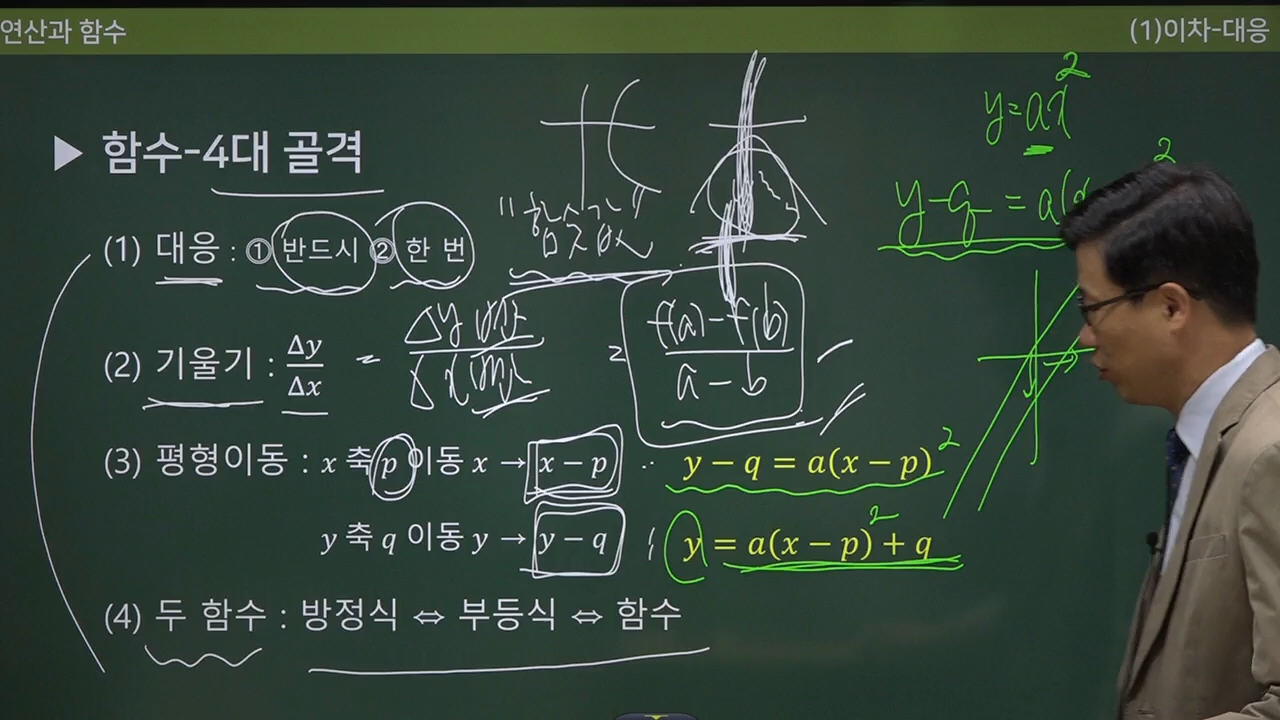 연산과 함수
(1)이차-대응
▶ 함수-4대 골격
y=ax²
y-q = a(x
2
(1) 대응 : ① 반드시 ② 한 번
"함숫값"
(2) 기울기 : Δy/Δx = Δy 변화/Δx 변화 = f(a)-f(b)/a-b
(3) 평형이동 : x 축 p 이동 x → x-p ∴ y-q = a(x-p)²
y 축 q 이동 y → y-q y = a(x-p)²+q
(4) 두 함수 : 방정식 ⇔ 부등식 ⇔ 함수